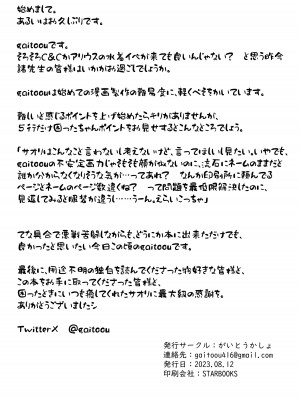 始めまして。
あるいはお久しぶりです。
gaitoouです。
そろそろC&Cかアリウスの水着イベが来ても良いんじゃない？ と思う昨今
諸先生の皆様はいかがお過ごしでしょうか。
gaitoouは始めての漫画製作の難易度に、軽くべそをかいています。
難しいと感じるポイントを上げ始めたらキリがありませんが、
5行だけ困ったちゃんポイントをお見せするとこんなところでしょう。
「サオリはこんなこと言わないし考えないけど、言ってほしいし見たい。いやでも、
gaitoouの不安定画力じゃそもそも顔が似ないのに、流石にネームのままだと
誰か分からなくなりそうな気が…ってあれ？ なんか印刷所に頼んでる
ページとネームのページ数違くね？ って問題を最低限解決したのに、
見返してみると服装が違う……うーん、えらいこっちゃ」
てな具合で悪戦苦闘しながらも、どうにか本に出来ただけでも、
良かったと思いたい今日この頃のgaitoouです。
最後に、用途不明の独白を読んでくださった物好きな皆様と、
この本をお手に取ってくださった皆様と、
困ったときにいつも癒してくれたサオリに最大級の感謝を。
ありがとうございました
TwitterX @gaitoou
発行サークル：がいとうかしょ
連絡先：gaitoou416@gmail.com
発行日：2023.08.12
印刷会社：STARBOOKS